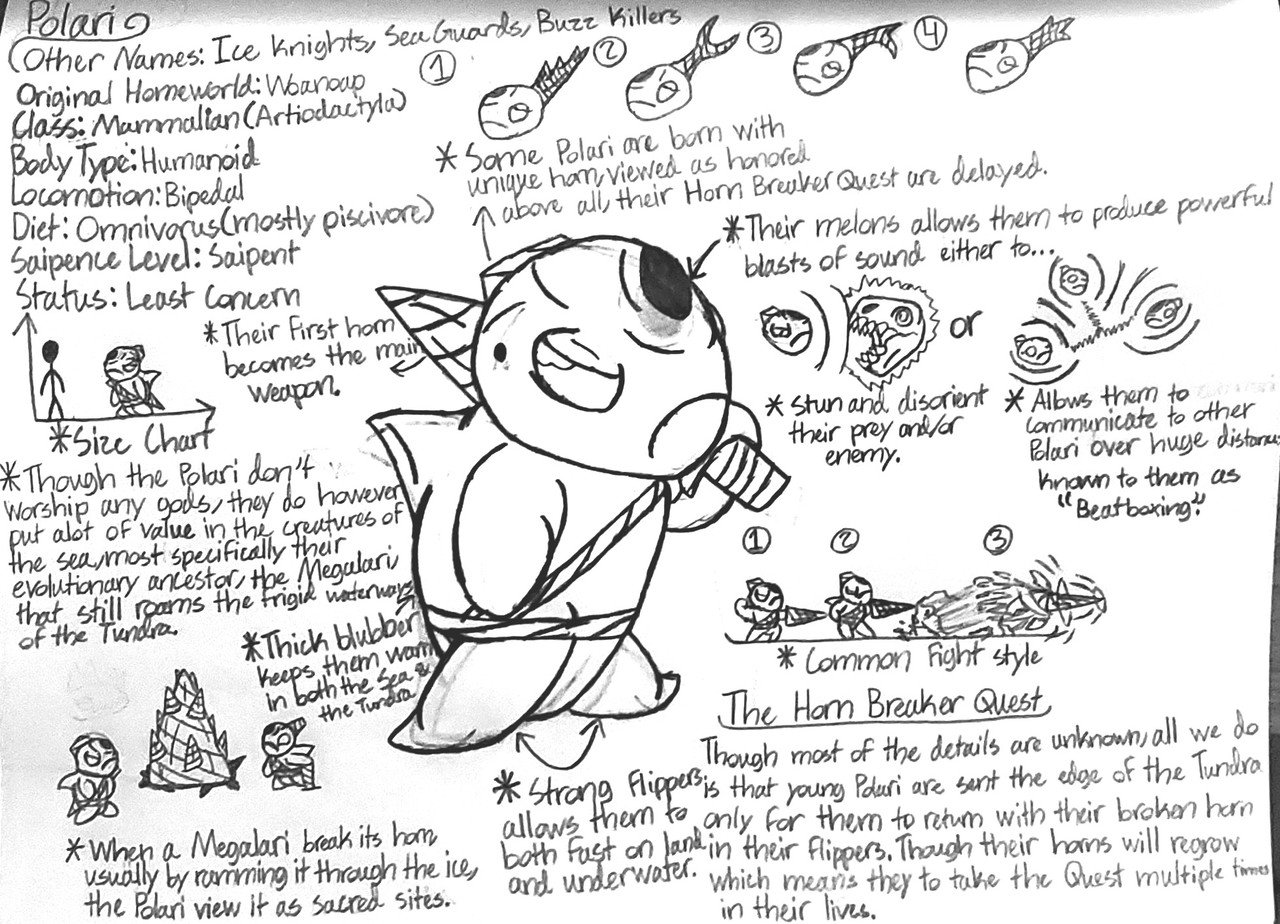 Polari
Other Names: Ice Knights, Sea Guards, Buzz Killers
Original Homeworld: Woanoup
Class: Mammalian (Artiodactyla)
Body Type: Humanoid
Locomotion: Bipedal
Diet: Omnivorus (mostly piscivore)
Saipence Level: Saipent
Status: Least Concern
1
2
3
4
* Some Polari are born with
unique horn, viewed as honored
above all, their Horn Breaker Quest are delayed.
* Their melons allows them to produce powerful
blasts of sound either to...
or
* Stun and disorient
their prey and/or
enemy.
* Allows them to
communicate to other
Polari over huge distance
known to them as
"Beatboxing."
* Their first horn
becomes the main
weapon.
* Size Chart
* Though the Polari don't
worship any gods, they do however
put alot of value in the creatures of
the sea, most specifically their
evolutionary ancestor, the Megalari
that still roams the frigid waterways
of the Tundra.
* Thick blubber
keeps them warm
in both the Sea &
the Tundra
1
2
3
* Common Fight style
* When a Megalari break its horn,
usually by ramming it through the ice,
the Polari view it as sacred sites.
* Strong Flippers
allows them to
both fast on land
and underwater.
The Horn Breaker Quest
Though most of the details are unknown, all we do
is that young Polari are sent the edge of the Tundra
only for them to return with their broken horn
in their flippers. Though their horns will regrow
which means they to take the Quest multiple times
in their lives.